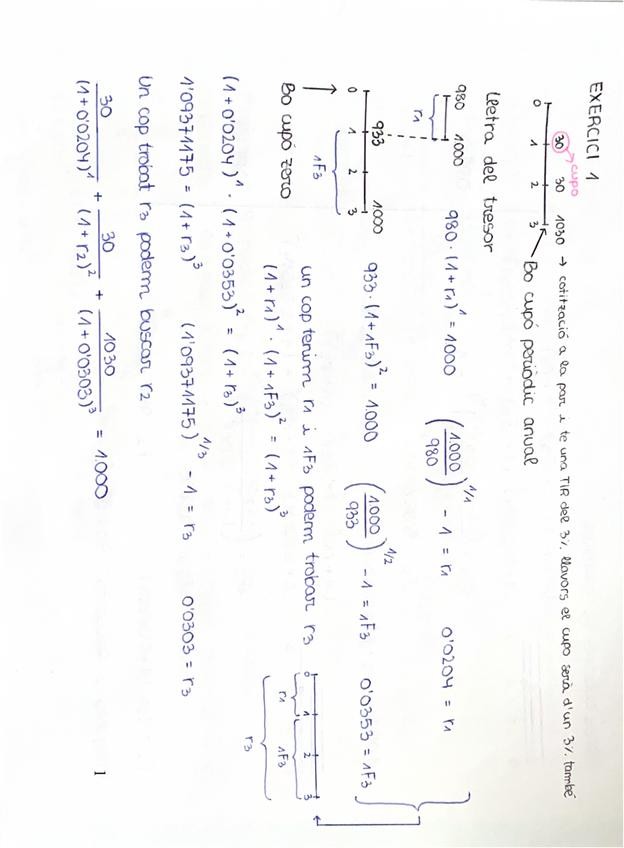 EXERCICI 1
30 → cupo
30 1030 → cotització a la par i te una TIR del 3% llavors el cupo serà d'un 3% també
0 1 2 3
Bo cupó periòdic anual
Lletra del tresor
980 1000
r1
980 · (1 + r1)^1 = 1000 (1.000/980)^1/1 - 1 = r1 0'0204 = r1
933 1000
0 1 2 3
1F3
Bo cupó zero
933 · (1 + 1F3)^2 = 1.000 (1.000/933)^1/2 - 1 = 1F3 0'0353 = 1F3
un cop tenim r1 i 1F3 podem trobar r3
(1 + r1)^1 · (1 + 1F3)^2 = (1 + r3)^3
0 1 2 3
r1 1F3
r3
(1 + 0'0204)^1 · (1 + 0'0353)^2 = (1 + r3)^3
1'09371175 = (1 + r3)^3 (1'09371175)^1/3 - 1 = r3 0'0303 = r3
Un cop trobat r3 podem buscar r2
30/(1 + 0'0204)^1 + 30/(1 + r2)^2 + 1030/(1 + 0'0303)^3 = 1.000
1